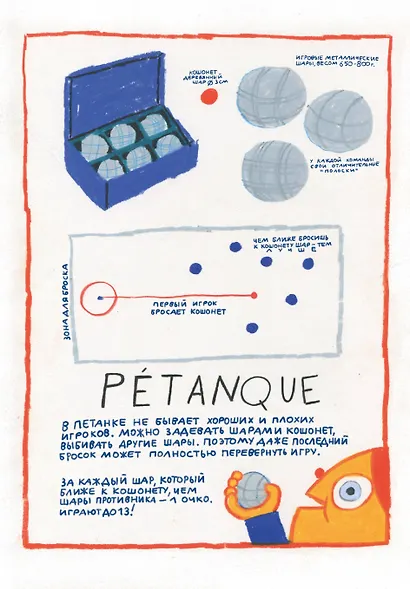 КОШОНЕТ,
ДЕРЕВЯННЫЙ
ШАР Ø 3СМ
ИГРОВЫЕ МЕТАЛЛИЧЕСКИЕ
ШАРЫ, ВЕСОМ 650-800Г.
У КАЖДОЙ КОМАНДЫ
СВОИ ОТЛИЧИТЕЛЬНЫЕ
"ПОЛОСКИ"
ЗОНА ДЛЯ БРОСКА
ЧЕМ БЛИЖЕ БРОСИШЬ
К КОШОНЕТУ ШАР - ТЕМ
ЛУЧШЕ
ПЕРВЫЙ ИГРОК
БРОСАЕТ КОШОНЕТ
PÉTANQUE
В ПЕТАНКЕ НЕ БЫВАЕТ ХОРОШИХ И ПЛОХИХ
ИГРОКОВ. МОЖНО ЗАДЕВАТЬ ШАРАМИ КОШОНЕТ,
ВЫБИВАТЬ ДРУГИЕ ШАРЫ. ПОЭТОМУ ДАЖЕ ПОСЛЕДНИЙ
БРОСОК МОЖЕТ ПОЛНОСТЬЮ ПЕРЕВЕРНУТЬ ИГРУ.
ЗА КАЖДЫЙ ШАР, КОТОРЫЙ
БЛИЖЕ К КОШОНЕТУ, ЧЕМ
ШАРЫ ПРОТИВНИКА – 1 ОЧКО.
ИГРАЮТ ДО 13!